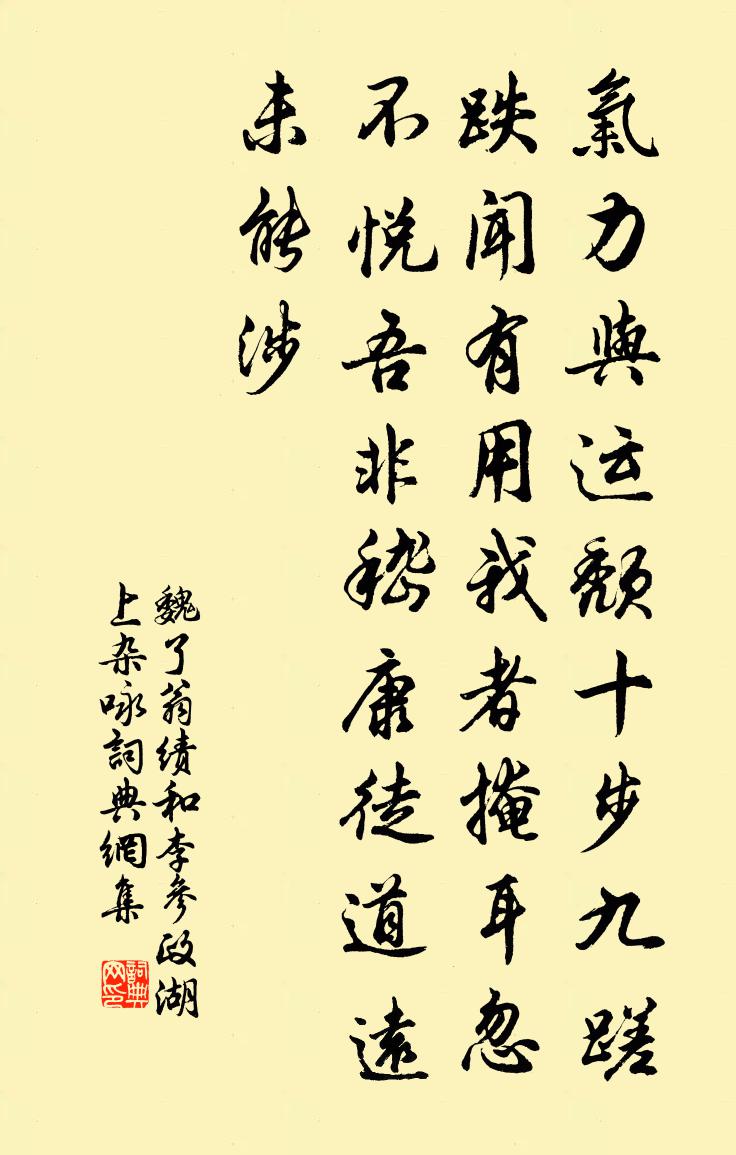 氣力與运頽十步九蹉
跌聞有用我者掩耳忽
不悦吾非嵇康徒道遠
未能涉
魏了翁续和李參政湖
上杂咏詞典網集
詞典网印